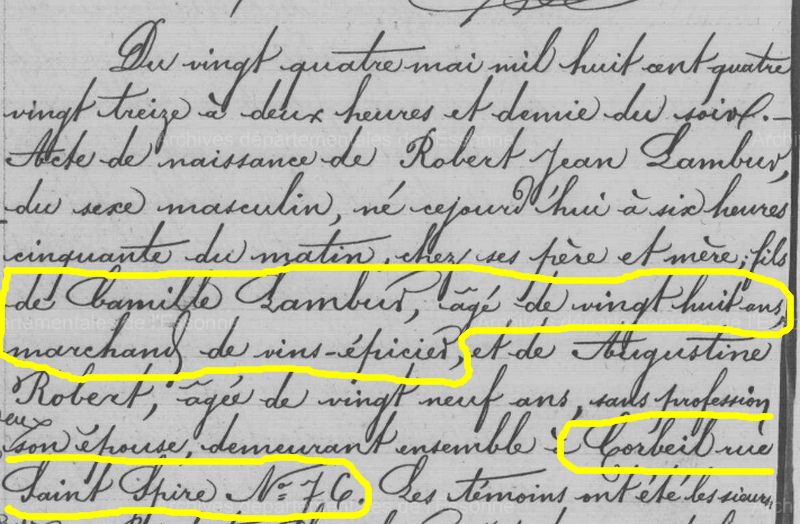 Du vingt quatre mai mil huit cent quatre
vingt treize à deux heures et demie du soir.
Acte de naissance de Robert Jean Lambur,
du sexe masculin, né cejourd'hui à six heures
cinquante du matin, chez ses père et mère; fils
de Camille Lambur, âgé de vingt huit ans,
marchand de vins-épicier, et de Augustine
Robert, âgée de vingt neuf ans, sans profession
son épouse, demeurant ensemble à Corbeil rue
Saint Spire No 76. Les témoins ont été les sieurs